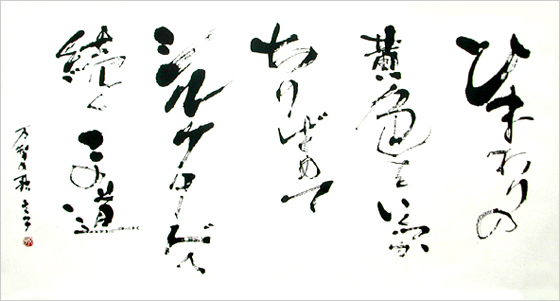 ひまわりの
黄色を
ちりばめて
シルクロードへ
続くこの道
万智の歌